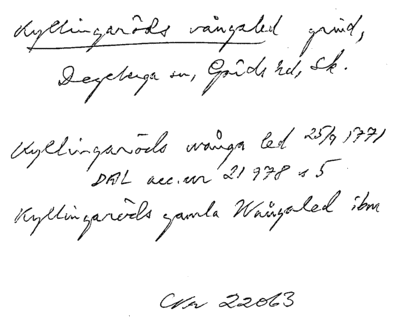 Kyllingaröds vångaled grind,
Degeberga sn, Gärds hd, Sk.
Kyllingaröds wånga led 25/9 1771
DAL acc.nr 21978 s 5
Kyllingaröds gamla Wångaled ibm
22063